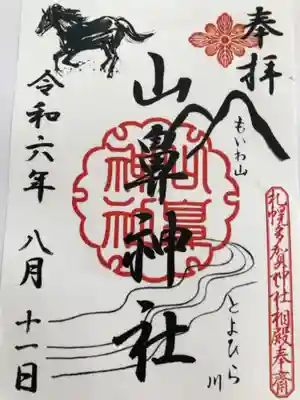 奉拝
もいわ山
とよひら川
札幌多賀神社相殿奉斎
山鼻神社
山鼻
神社
令和六年 八月 十一日